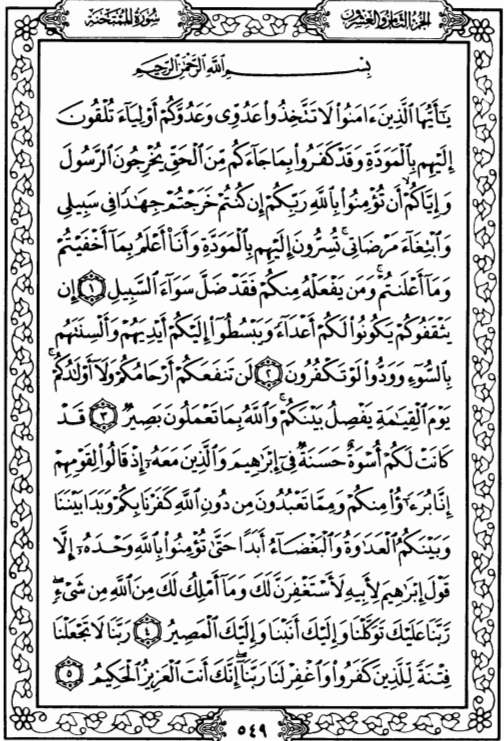 سُورَةُ المُمْتَحنَةِ
الجُزءُ الثَّامِنُ وَالعِشْرُونَ
بِسْمِ اللَّهِ الرَّحْمَٰنِ الرَّحِيمِ
يَـٰٓأَيُّهَا ٱلَّذِينَ ءَامَنُوا۟ لَا تَتَّخِذُوا۟ عَدُوِّى وَعَدُوَّكُمْ أَوْلِيَآءَ تُلْقُونَ
إِلَيْهِم بِٱلْمَوَدَّةِ وَقَدْ كَفَرُوا۟ بِمَا جَآءَكُم مِّنَ ٱلْحَقِّ يُخْرِجُونَ ٱلرَّسُولَ
وَإِيَّاكُمْ ۙ أَن تُؤْمِنُوا۟ بِٱللَّهِ رَبِّكُمْ إِن كُنتُمْ خَرَجْتُمْ جِهَـٰدًا فِى سَبِيلِى
وَٱبْتِغَآءَ مَرْضَاتِى ۚ تُسِرُّونَ إِلَيْهِم بِٱلْمَوَدَّةِ وَأَنَا۠ أَعْلَمُ بِمَآ أَخْفَيْتُمْ
وَمَآ أَعْلَنتُمْ ۚ وَمَن يَفْعَلْهُ مِنكُمْ فَقَدْ ضَلَّ سَوَآءَ ٱلسَّبِيلِ ١ إِن
يَثْقَفُوكُمْ يَكُونُوا۟ لَكُمْ أَعْدَآءً وَيَبْسُطُوٓا۟ إِلَيْكُمْ أَيْدِيَهُمْ وَأَلْسِنَتَهُم
بِٱلسُّوٓءِ وَوَدُّوا۟ لَوْ تَكْفُرُونَ ٢ لَن تَنفَعَكُمْ أَرْحَامُكُمْ وَلَآ أَوْلَـٰدُكُمْ ۚ
يَوْمَ ٱلْقِيَـٰمَةِ يَفْصِلُ بَيْنَكُمْ ۚ وَٱللَّهُ بِمَا تَعْمَلُونَ بَصِيرٌ ٣ قَدْ
كَانَتْ لَكُمْ أُسْوَةٌ حَسَنَةٌ فِىٓ إِبْرَٰهِيمَ وَٱلَّذِينَ مَعَهُۥٓ إِذْ قَالُوا۟ لِقَوْمِهِمْ
إِنَّا بُرَءَٰٓؤُا۟ مِنكُمْ وَمِمَّا تَعْبُدُونَ مِن دُونِ ٱللَّهِ كَفَرْنَا بِكُمْ وَبَدَا بَيْنَنَا
وَبَيْنَكُمُ ٱلْعَدَٰوَةُ وَٱلْبَغْضَآءُ أَبَدًا حَتَّىٰ تُؤْمِنُوا۟ بِٱللَّهِ وَحْدَهُۥٓ إِلَّا
قَوْلَ إِبْرَٰهِيمَ لِأَبِيهِ لَأَسْتَغْفِرَنَّ لَكَ وَمَآ أَمْلِكُ لَكَ مِنَ ٱللَّهِ مِن شَىْءٍ ۖ
رَّبَّنَا عَلَيْكَ تَوَكَّلْنَا وَإِلَيْكَ أَنَبْنَا وَإِلَيْكَ ٱلْمَصِيرُ ٤ رَبَّنَا لَا تَجْعَلْنَا
فِتْنَةً لِّلَّذِينَ كَفَرُوا۟ وَٱغْفِرْ لَنَا رَبَّنَآ ۖ إِنَّكَ أَنتَ ٱلْعَزِيزُ ٱلْحَكِيمُ ٥
٥٤٩